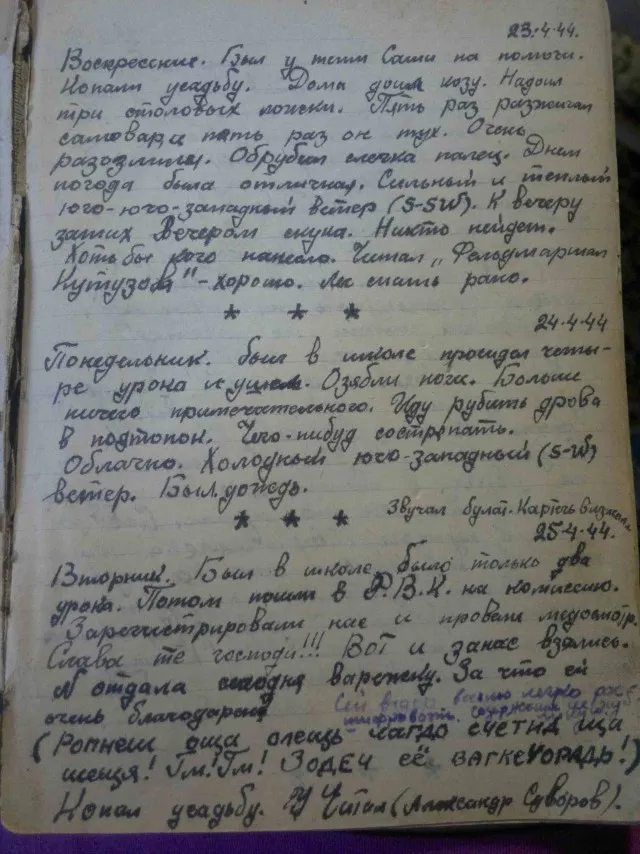 23·4·44.
Воскресение. Был у тети Саши на помочи.
Копали усадьбу. Дома доил козу. Надоил
три столовых ложки. Пять раз разжигал
самовар и пять раз он тух. Очень
разозлился. Обрубил слегка палец. Днем
погода была отличная. Сильный и теплый
юго-юго-западный ветер (S-SW). К вечеру
затих Вечером скука. Никто нейдет.
Хоть бы кого нанесло. Читал „Фельдмаршал
Кутузов" - хорошо. Лег спать рано.
* * *
24·4·44
Понедельник. был в школе просидел четы-
ре урока и ушел. Озябли ноги. Больше
ничего примечательного. Иду рубить дрова
в подтопок. Чего-нибуд состряпать.
Облачно. Холодный юго-западный (S-W)
ветер. Был дождь.
* * *
Звучал булат. Картечь визжала
25·4·44.
Вторник. Был в школе, было только два
урока. Потом пошли в Р.В.К. на комиссию.
Зарегистрировали нас и провели медосмотр.
Слава те господи!!! Вот и за нас взялись.
N отдала сегодня варежку. За что ей
очень благодарен
Сей легко
(Ропнеш оща олещь лагдо счетид ищ
шенщя! Гм! Гм! Зодеч её
Копал усадьбу. Читал (Александр Суворов).